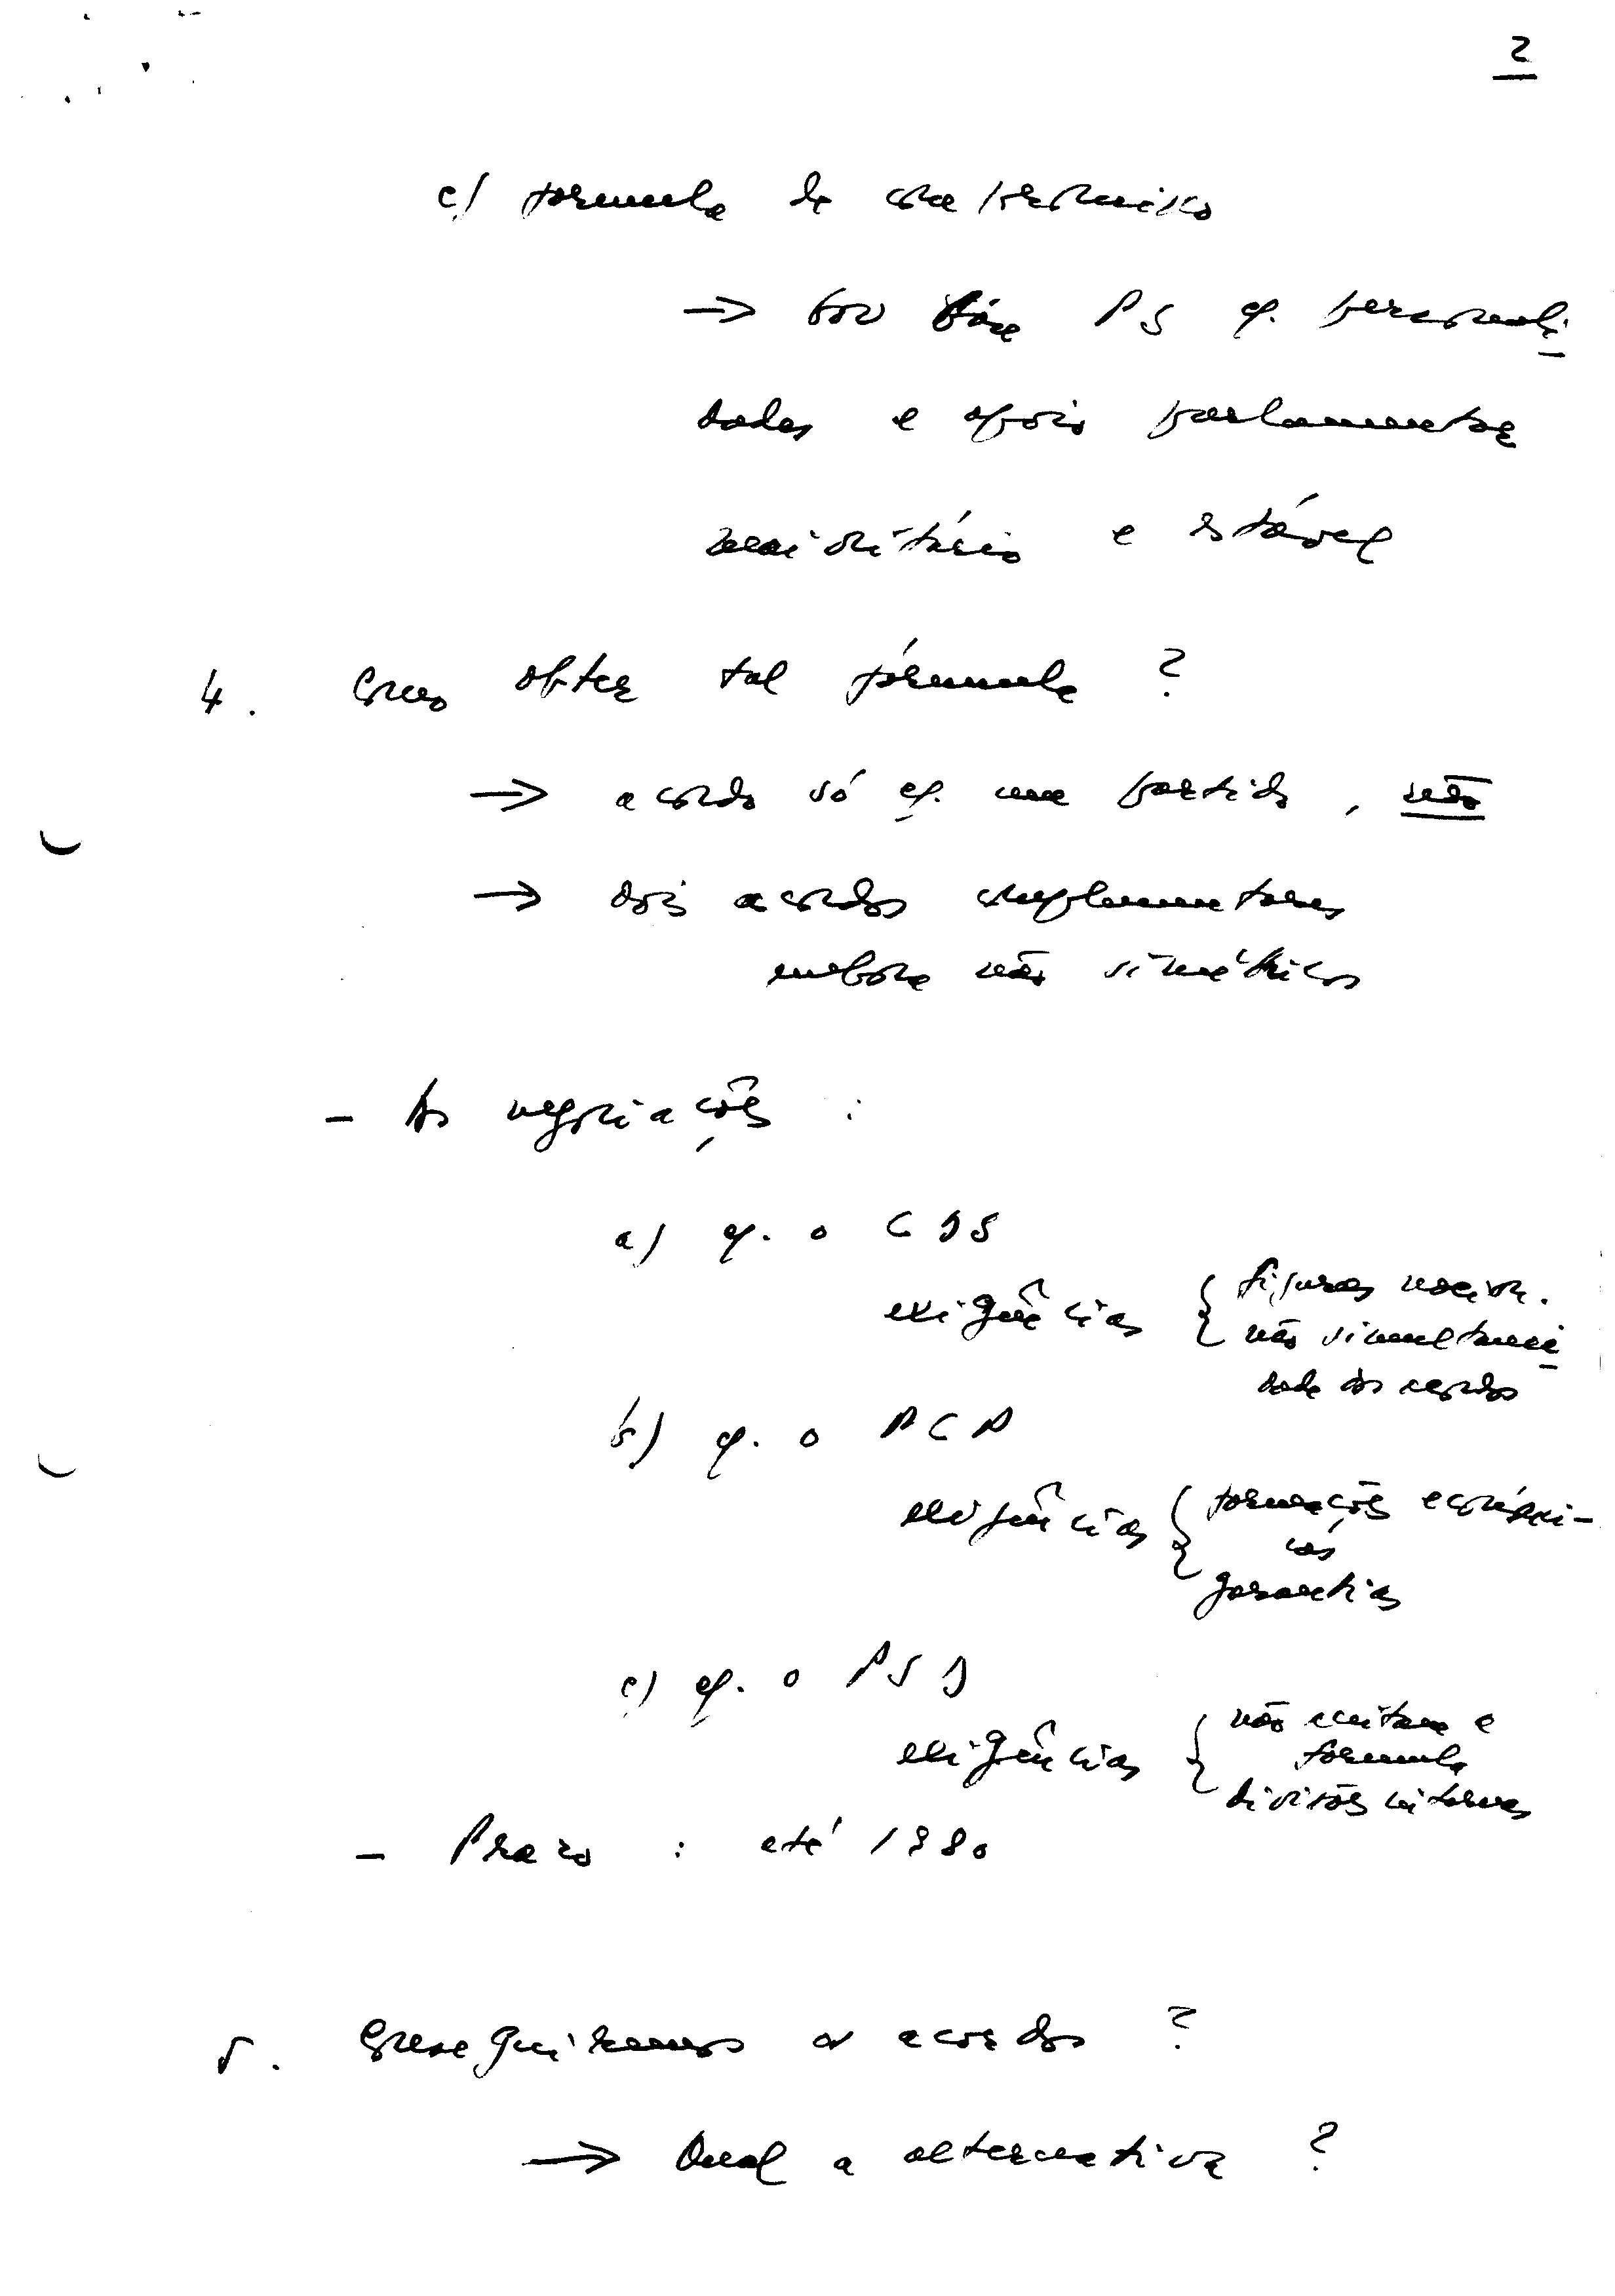 2
c) formula de compromisso
→ Gov base PS c/. personali-
dades e apoio parlamentar
maioritário e estável
4. Como obter tal fórmula ?
→ acordo só c/. um partido, não
→ dois acordos complementares
embora não simétricos
- As negociações :
a) c/. o CDS
exigências { figuras
não simultanei-
dade dos acordos
b) c/. o PCP
exigências { económi-
cas
garantias
c) c/. o PSD
exigências { não aceitam a
formula
divisões internas
- Prazo : até 1980
5. Conseguiremos os acordos ?
→ Qual a alternativa ?